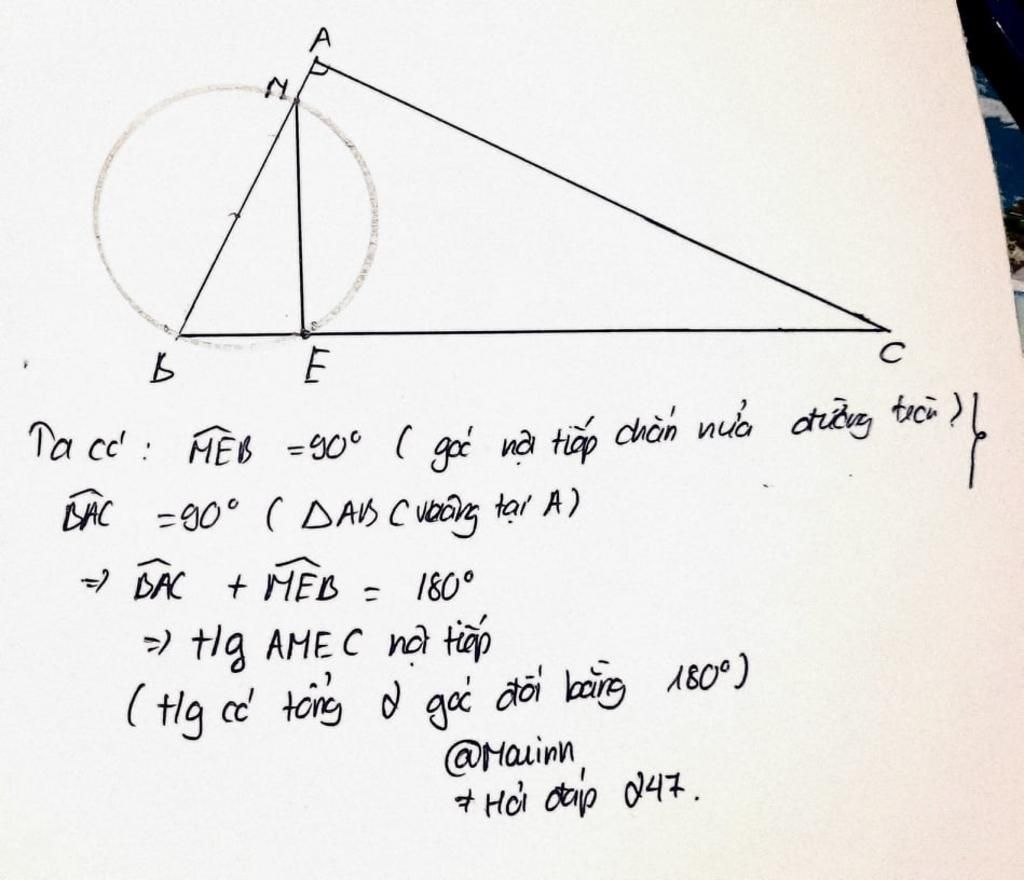 A
M
B
E
C
Ta có : MEB = 90° ( góc nội tiếp chắn nửa đường tròn )
BAC = 90° ( △ABC vuông tại A )
=> BAC + MEB = 180°
=> t/g AMEC nội tiếp
( t/g có tổng 2 góc đối bằng 180° )
@Maiinn
# Hỏi đáp 247.